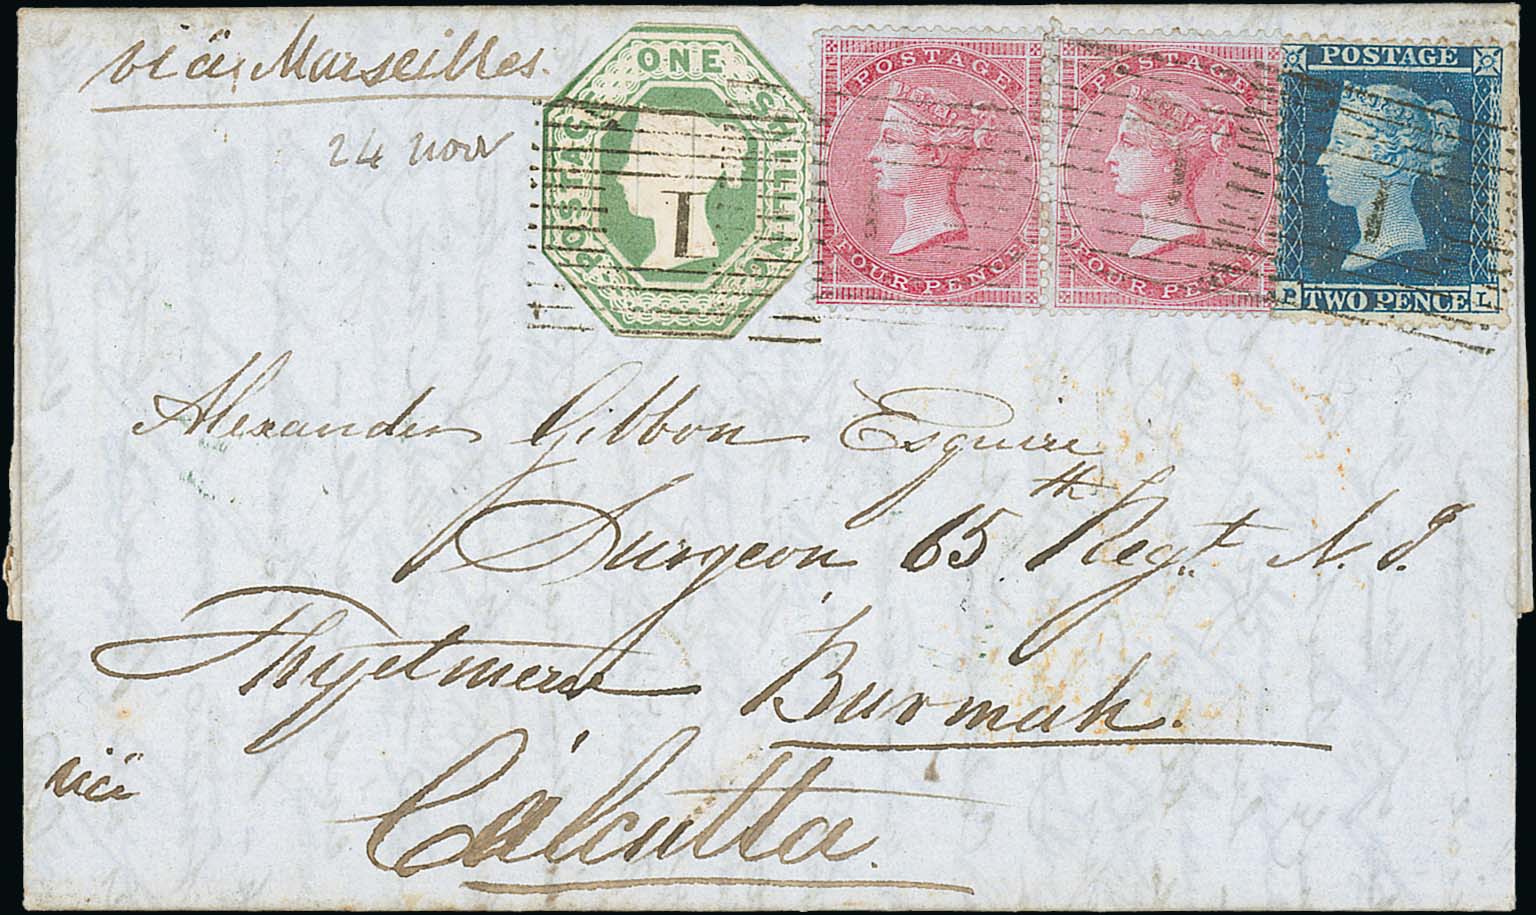 viâ Marseilles.
24 Novr
ONE SHILLING POSTAGE
1
POSTAGE
FOUR PENCE
POSTAGE
FOUR PENCE
POSTAGE
P TWO PENCE L
Alexander Gibbon Esquire
Surgeon 65th Regt. N. I.
Thyetmew Burmah.
viâ
Calcutta.